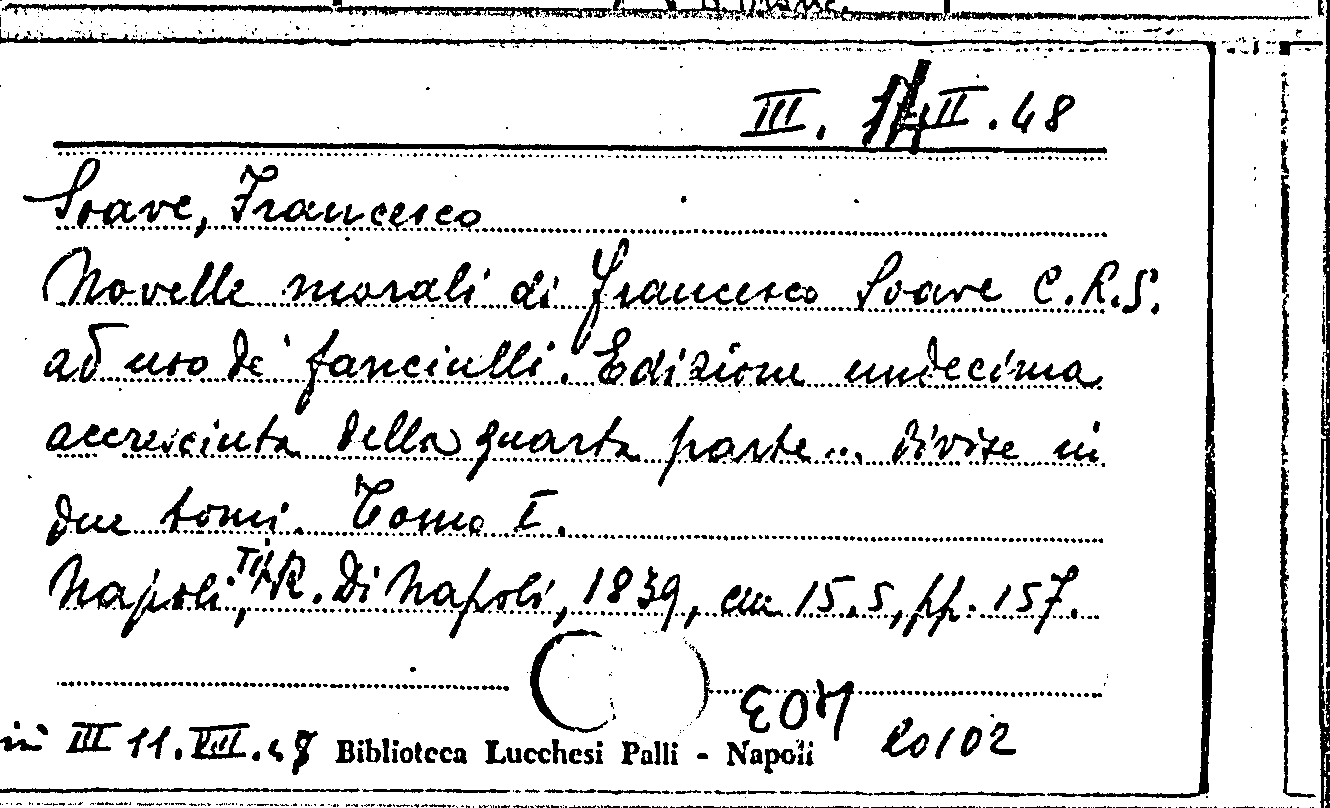 III. 14 II. 48
Soave, Francesco
Novelle morali di Francesco Soave C.R.S.
ad uso de' fanciulli. Edizione undecima
accresciuta della quarta parte... divise in
due tomi. Tomo I.
Napoli, Tip. R. Di Napoli, 1839, cm 15.5, pp. 157.
in III 11. VIII. 48 Biblioteca Lucchesi Palli - Napoli 20102